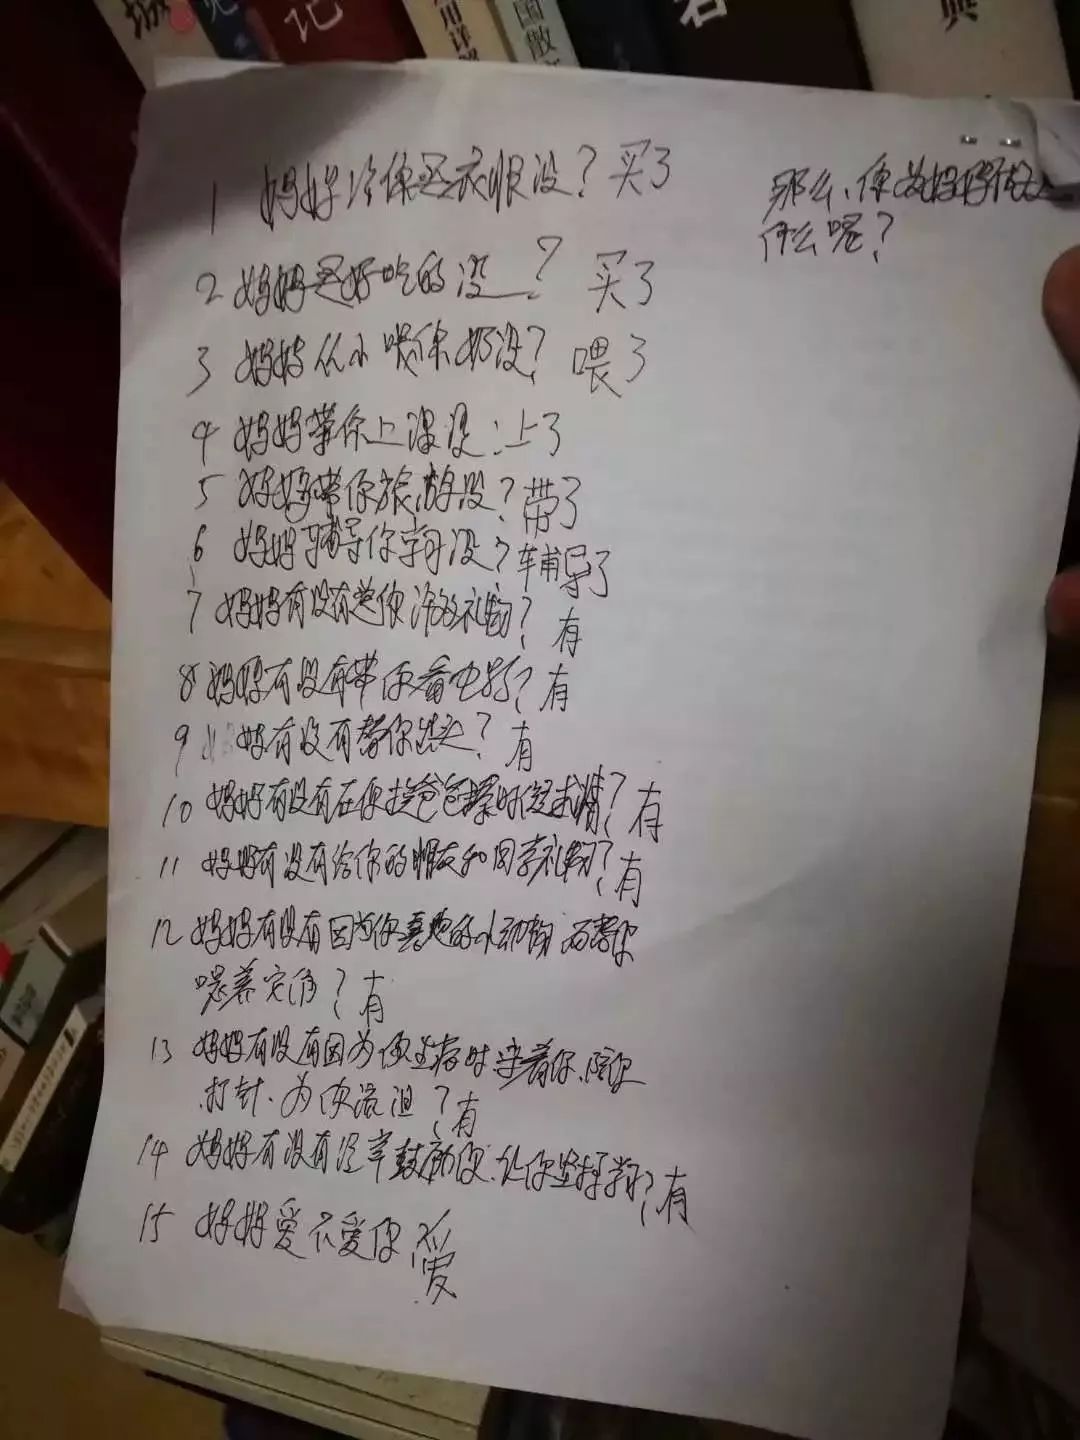 记
用详解
国散文
君
典
1 妈妈给你买衣服没？买了
2 妈妈买好吃的没？买了
3 妈妈从小喂你奶没？喂了
4 妈妈带你上课没：上了
5 妈妈带你旅游没？带了
6 妈妈辅导你学习没？辅导了
7 妈妈有没有送你许多礼物？有
8 妈妈有没有带你看电影？有
9 妈妈有没有替你洗头？有
10 妈妈有没有在你挨爸爸揍时候求情？有
11 妈妈有没有给你的朋友和同学礼物？有
12 妈妈有没有因为你喜欢的小动物而帮你
喂养它们？有
13 妈妈有没有因为你生病时守着你、陪你
打针、为你流泪？有
14 妈妈有没有经常鼓励你、让你坚持学习？有
15 妈妈爱不爱你 爱
那么、你为妈妈做过
什么呢？